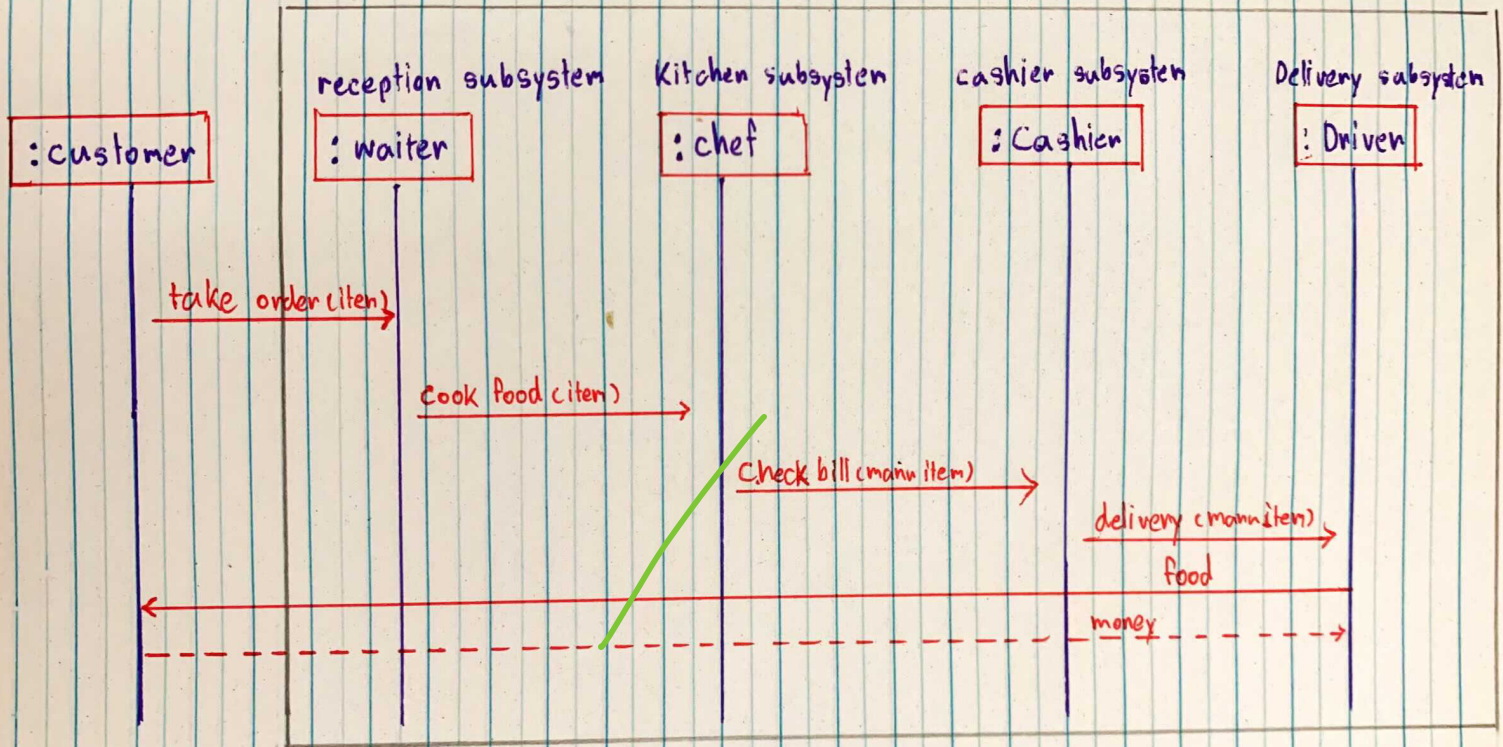 reception subsystem
Kitchen subsysten
cashier subsysten
Delivery subsysten
:customer
: waiter
: chef
: Cashier
: Driver
take order (iten)
Cook food (iten)
Check bill (manu item)
delivery (manu iten)
food
money